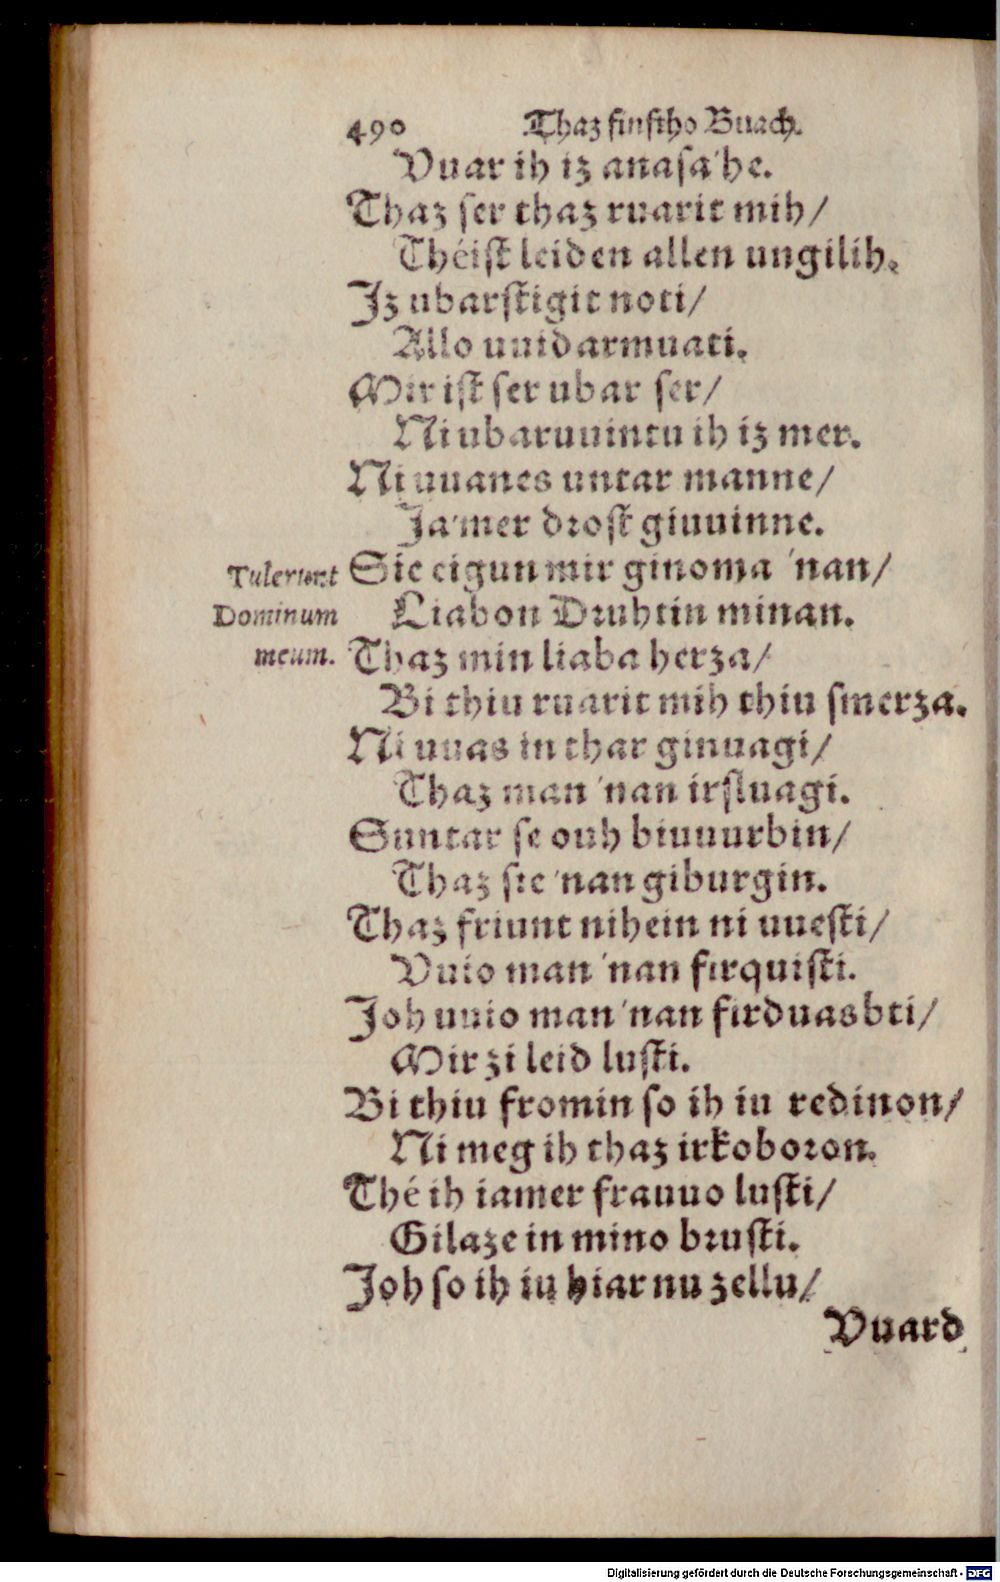 490 Thaz finftho Buach.
Vuar ih iz anasa'he.
Thaz ser thaz ruarit mih/
Théist leiden allen ungilih.
Jz ubarstigit noti/
Allo uuidarmuati.
Mir ist ser ubar ser/
Ni ubaruuintu ih iz mer.
Ni uuanes untar manne/
Ja'mer drost giuuinne.
Tulerunt Sie eigun mir ginoma 'nan/
Dominum Liabon Druhtin minan.
meum. Thaz min liaba herza/
Bi thiu ruarit mih thiu smerza.
Ni uuas in thar ginuagi/
Thaz man 'nan irsluagi.
Suntar se ouh biuuurbin/
Thaz sie 'nan giburgin.
Thaz friunt nihein ni uuesti/
Vuio man 'nan firquisti.
Joh uuio man 'nan firduasbti/
Mir zi leid lusti.
Bi thiu fromin so ih iu redinon/
Ni meg ih thaz irkoboron.
Thé ih iamer frauuo lusti/
Gilaze in mino brusti.
Joh so ih iu hiar nu zellu/
Vuard
Digitalisierung gefördert durch die Deutsche Forschungsgemeinschaft - DFG